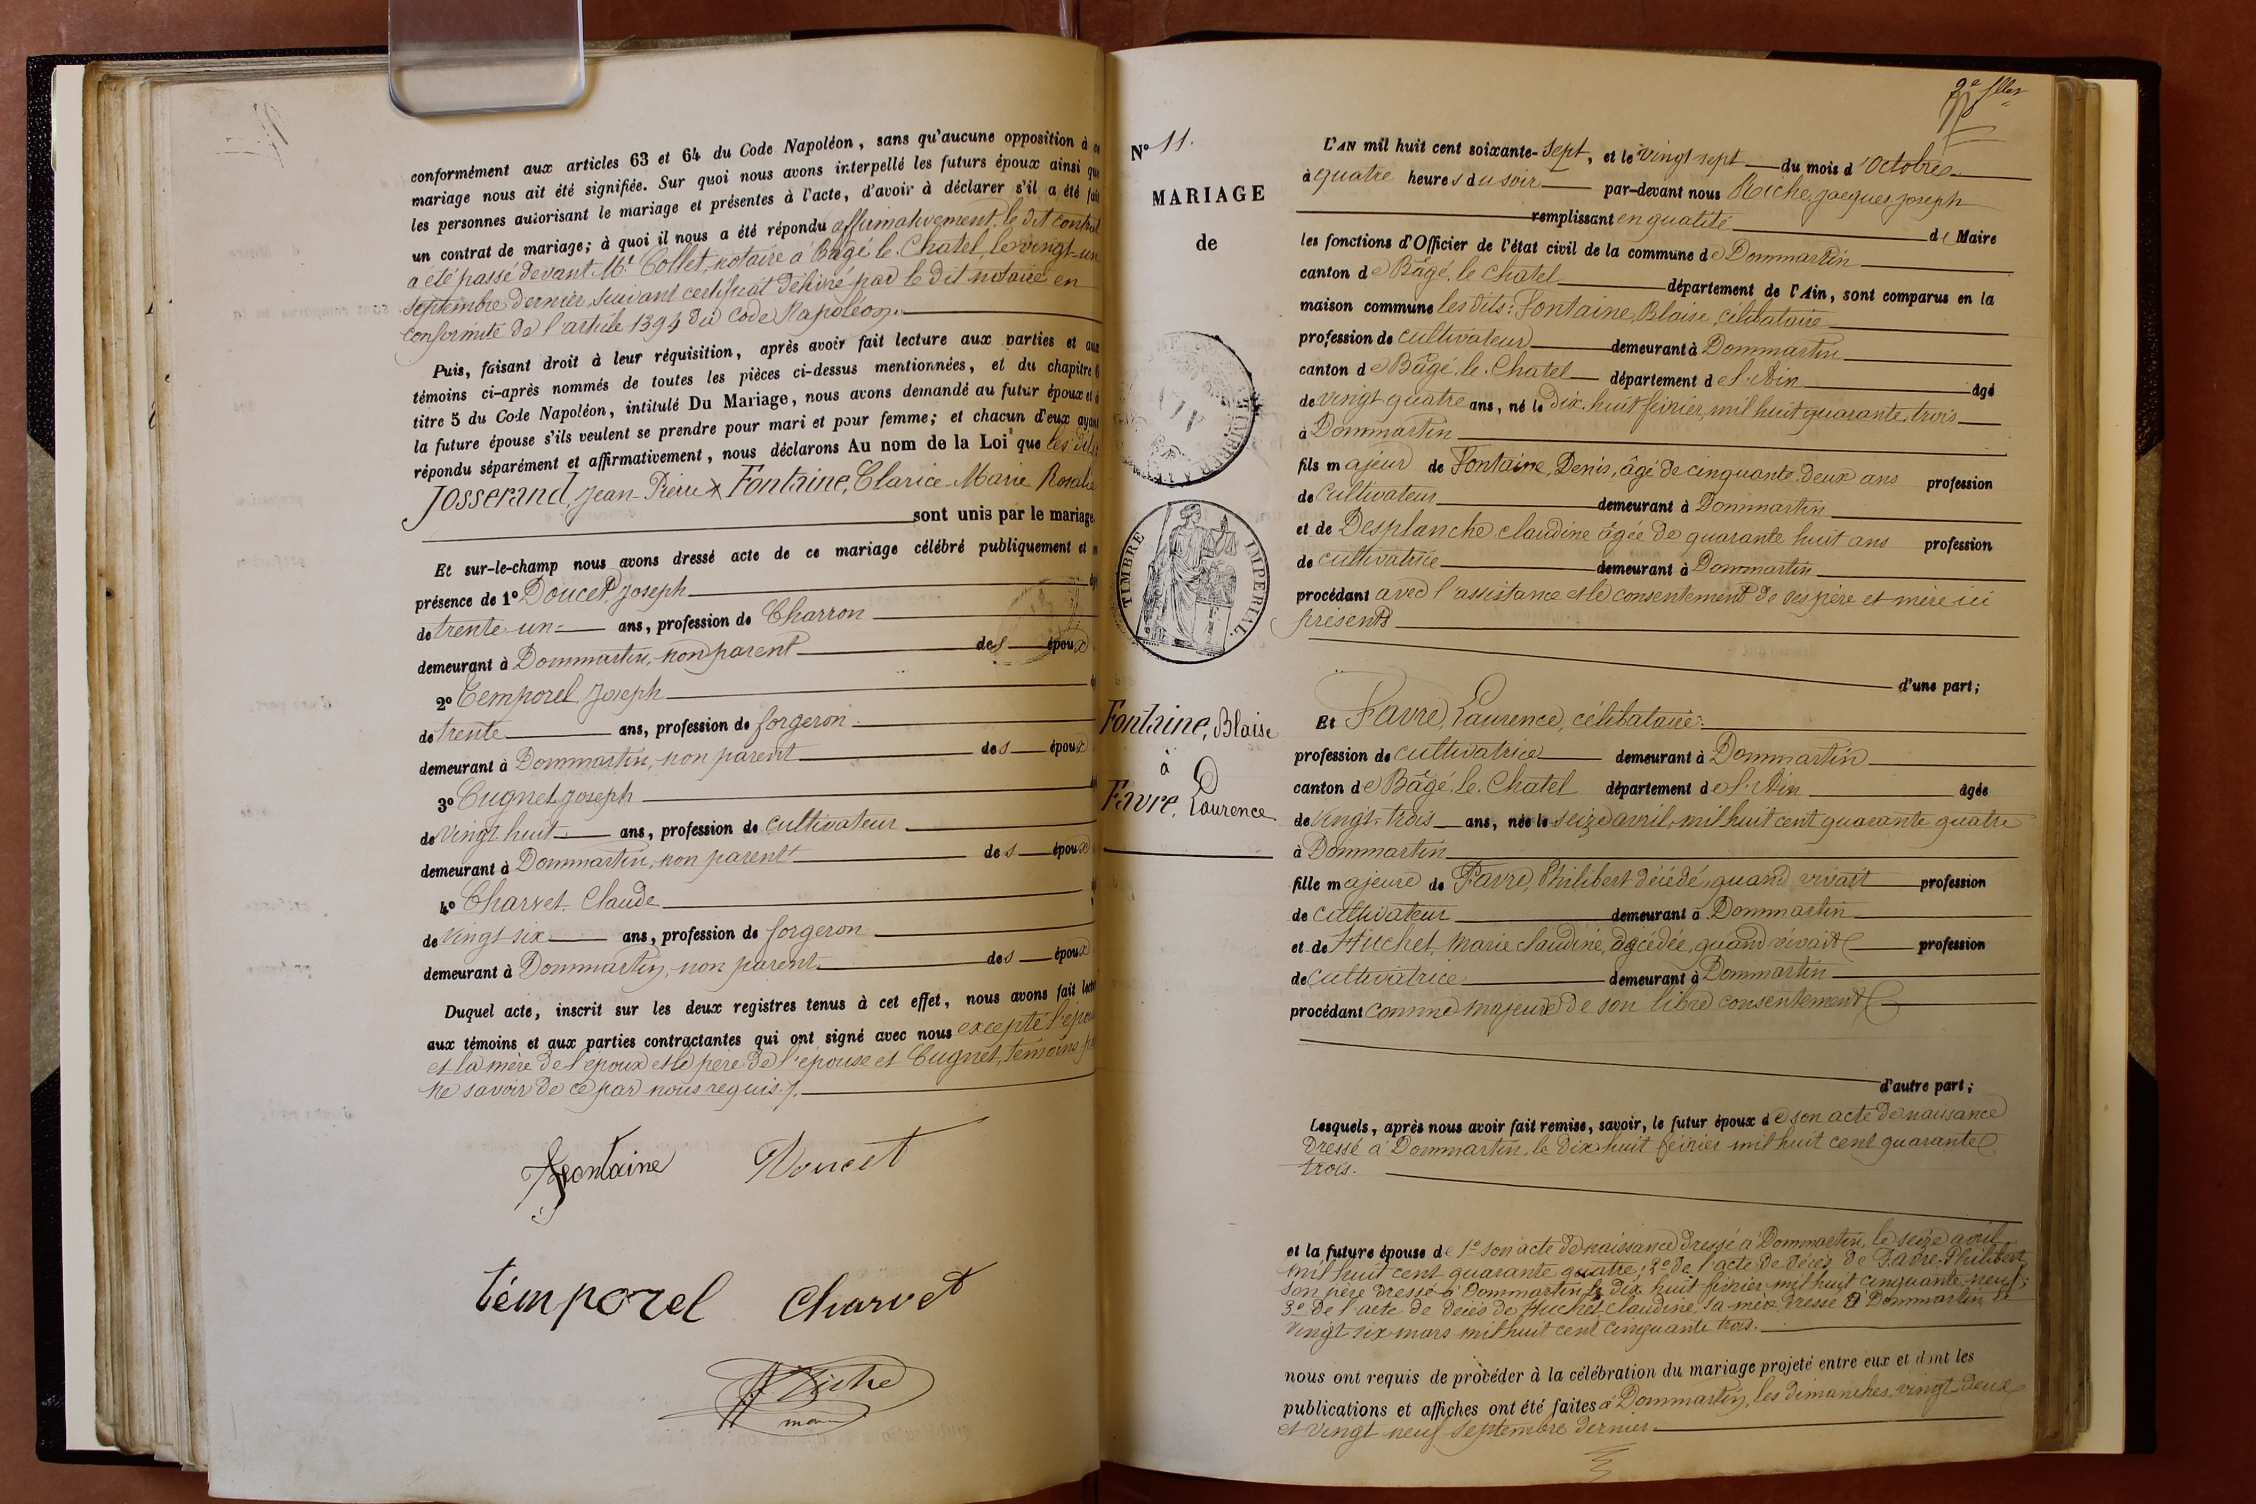 conformément aux articles 63 et 64 du Code Napoléon, sans qu'aucune opposition à ce
mariage nous ait été signifiée. Sur quoi nous avons interpellé les futurs époux ainsi que
les personnes autorisant le mariage et présentes à l'acte, d'avoir à déclarer s'il a été fait
un contrat de mariage; à quoi il nous a été répondu affirmativement, le dit contrat
a été passé devant Me Collet, notaire à Bâgé le Chatel, le vingt-un
septembre dernier, suivant certificat délivré par le dit notaire en
conformité de l'article 1394 du Code Napoléon.
Puis, faisant droit à leur réquisition, après avoir fait lecture aux parties et aux
témoins ci-après nommés de toutes les pièces ci-dessus mentionnées, et du chapitre 6
titre 5 du Code Napoléon, intitulé Du Mariage, nous avons demandé au futur époux et à
la future épouse s'ils veulent se prendre pour mari et pour femme; et chacun d'eux ayant
répondu séparément et affirmativement, nous déclarons Au nom de la Loi que les dits
Josserand, Jean-Pierre & Fontaine, Clarice Marie Rosalie
sont unis par le mariage.
Et sur-le-champ nous avons dressé acte de ce mariage célébré publiquement et en
présence de 1º Doucet Joseph
de trente un ans, profession de Charron
demeurant à Dommartin, non parent des époux
2º Temporel Joseph
de trente ans, profession de forgeron
demeurant à Dommartin, non parent des époux
3º Cugnet Joseph
de vingt huit ans, profession de cultivateur
demeurant à Dommartin, non parent des époux
4º Charvet Claude
de vingt six ans, profession de forgeron
demeurant à Dommartin, non parent des époux
Duquel acte, inscrit sur les deux registres tenus à cet effet, nous avons fait lecture
aux témoins et aux parties contractantes qui ont signé avec nous excepté l'époux
et la mère de l'époux et le père de l'épouse et Cugnet, témoins
ne savoir de ce par nous requis.
fontaine Doucet
témporel Charvet
Riche
maire
2e fllet
Nº 11.
MARIAGE
de
TIMBRE IMPERIAL.
Fontaine, Blaise
à
Favre, Laurence
L'AN mil huit cent soixante-sept, et le vingt sept du mois d'Octobre
à quatre heures du soir par-devant nous Riche, Jacques Joseph
remplissant en qualité de Maire
les fonctions d'Officier de l'état civil de la commune de Dommartin
canton de Bâgé le Chatel département de l'Ain, sont comparus en la
maison commune les dits: Fontaine, Blaise, célibataire
profession de cultivateur demeurant à Dommartin
canton de Bâgé le Chatel département de l'Ain âgé
de vingt quatre ans, né le dix-huit février, mil huit quarante trois
à Dommartin
fils majeur de Fontaine, Denis, âgé de cinquante deux ans profession
de cultivateur demeurant à Dommartin
et de Desplanche claudine âgée de quarante huit ans profession
de cultivatrice demeurant à Dommartin
procédant avec l'assistance et le consentement de ses père et mère ici
présents
d'une part;
Et Favre, Laurence, célibataire
profession de cultivatrice demeurant à Dommartin
canton de Bâgé le Chatel département de l'Ain âgée
de vingt-trois ans, née le seize avril, mil huit cent quarante quatre
à Dommartin
fille majeure de Favre, Philibert décédé, quand vivait profession
de cultivateur demeurant à Dommartin
et de Huchet, Marie Claudine, décédée, quand vivait profession
de cultivatrice demeurant à Dommartin
procédant comme majeure de son libre consentement
d'autre part;
Lesquels, après nous avoir fait remise, savoir, le futur époux de son acte de naissance
dressé à Dommartin, le dix-huit février mil huit cent quarante
trois.
et la future épouse de 1º son acte de naissance dressé à Dommartin, le seize avril
mil huit cent quarante quatre; 2º de l'acte de décès de Favre Philibert
son père dressé à Dommartin le dix huit février mil huit cinquante-neuf;
3º de l'acte de décès de Huchet, Claudine, sa mère dressé à Dommartin le
vingt six mars mil huit cent cinquante trois.
nous ont requis de procéder à la célébration du mariage projeté entre eux et dont les
publications et affiches ont été faites à Dommartin, les dimanches vingt-deux
et vingt neuf Septembre dernier